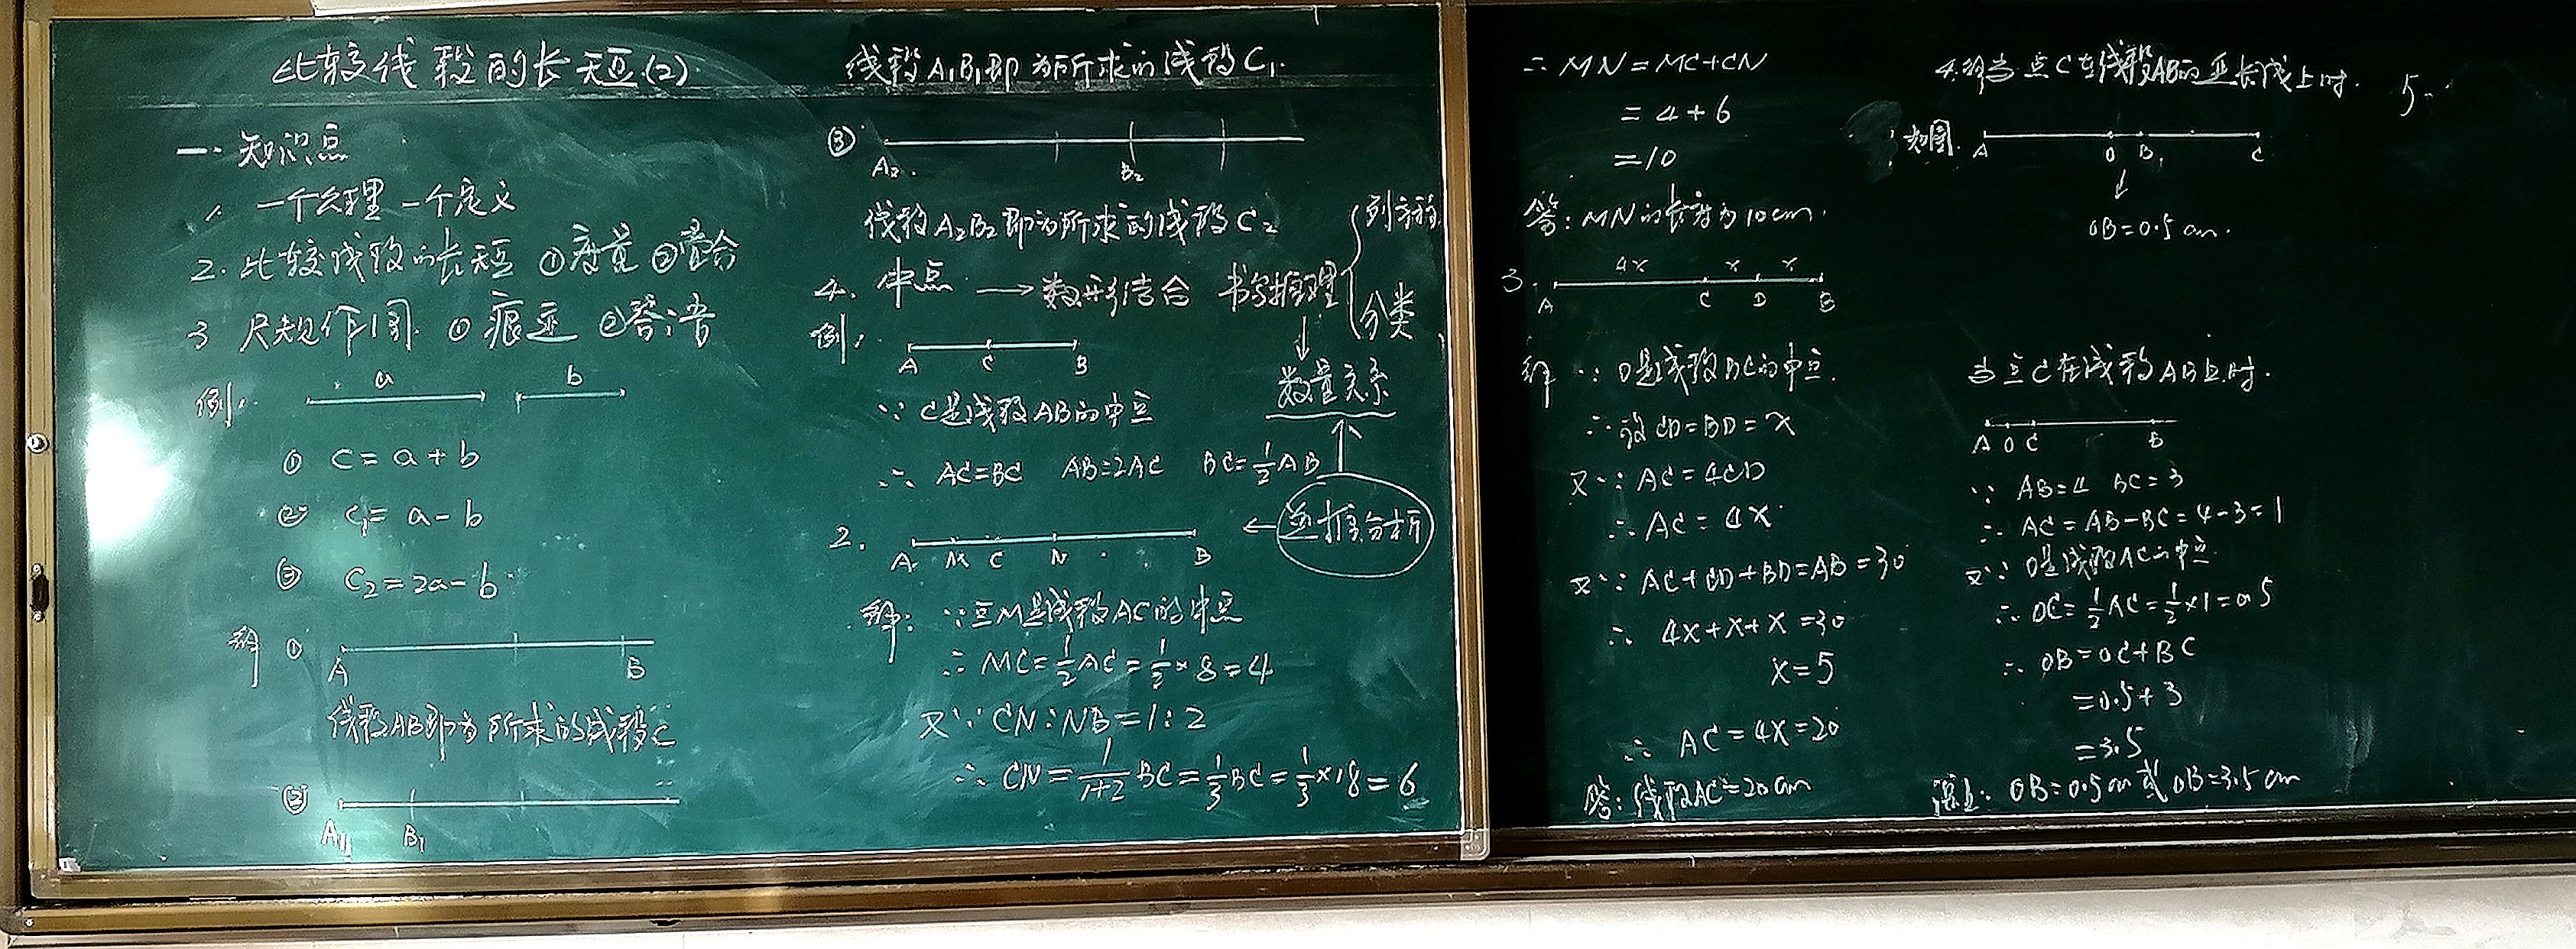 比较线段的长短(2)
一.知识点
1. 一个公理 一个定义
2. 比较线段的长短 ①度量 ②叠合
3 尺规作图 ①痕迹 ②答语
例1.
a b
① C=a+b
② C₁=a-b
③ C₂=2a-b
解 ①
A B
线段AB即为所求的线段C
②
A₁ B₁
线段A₁B₁即为所求的线段C₁.
③
A₂ B₂
线段A₂B₂即为所求的线段C₂
4. 中点 → 数形结合 书写推理 列方程
分类
数量关系
例1
A C B
∵ C是线段AB的中点
∴ AC=BC AB=2AC BC=½AB
逆推分析
2.
A M C N B
解: ∵点M是线段AC的中点
∴ MC=½AC=½×8=4
又∵ CN:NB=1:2
∴ CN=1/(1+2)BC=⅓BC=⅓×18=6
∴ MN=MC+CN
=4+6
=10
答:MN的长度为10cm.
3.
4x x x
A C D B
解 ∵ D是线段BC的中点.
∴设CD=BD=x
又∵ AC=4CD
∴ AC=4x
又∵ AC+CD+BD=AB=30
∴ 4x+x+x=30
x=5
∴ AC=4x=20
答:线段AC=20cm
4.解当点C在线段AB的延长线上时.
如图.
A O B C
OB=0.5cm.
当点C在线段AB上时.
A O C B
∵ AB=4 BC=3
∴ AC=AB-BC=4-3=1
又∵ O是线段AC的中点
∴ OC=½AC=½×1=0.5
∴ OB=OC+BC
=0.5+3
=3.5
综上: OB=0.5cm或OB=3.5cm
5.